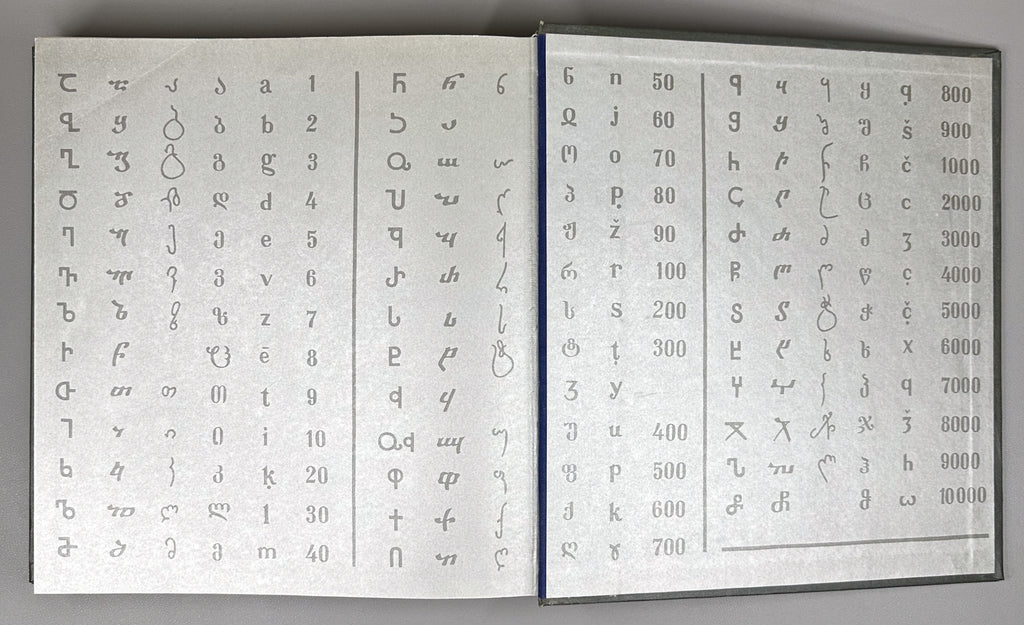 Ⴀ ⴀ ა ა a 1
Ⴁ ⴁ ბ ბ b 2
Ⴂ ⴂ გ გ g 3
Ⴃ ⴃ დ დ d 4
Ⴄ ⴄ ე ე e 5
Ⴅ ⴅ ვ ვ v 6
Ⴆ ⴆ ზ ზ z 7
Ⴡ ⴡ ჱ ē 8
Ⴇ ⴇ თ თ t 9
Ⴈ ⴈ ი ი i 10
Ⴉ ⴉ კ კ ḳ 20
Ⴊ ⴊ ლ ლ l 30
Ⴋ ⴋ მ მ m 40
Ⴌ ⴌ ნ ნ n 50
Ⴢ ⴢ ჲ j 60
Ⴍ ⴍ ო ო o 70
Ⴎ ⴎ პ პ p̣ 80
Ⴏ ⴏ ჟ ჟ ž 90
Ⴐ ⴐ რ რ r 100
Ⴑ ⴑ ს ს s 200
Ⴒ ⴒ ტ ტ ṭ 300
Ⴣ ⴣ ჳ y
ႭჃ ⴍⴣ უ უ u 400
Ⴔ ⴔ ფ ფ p 500
Ⴕ ⴕ ქ ქ k 600
Ⴖ ⴖ ღ ღ ɤ 700
Ⴗ ⴗ ყ ყ q̣ 800
Ⴘ ⴘ შ შ š 900
Ⴙ ⴙ ჩ ჩ č 1000
Ⴚ ⴚ ც ც c 2000
Ⴛ ⴛ ძ ძ ʒ 3000
Ⴜ ⴜ წ წ c̣ 4000
Ⴝ ⴝ ჭ ჭ č̣ 5000
Ⴞ ⴞ ხ ხ x 6000
Ⴤ ⴤ ჴ ჴ q 7000
Ⴟ ⴟ ჯ ჯ ǯ 8000
Ⴠ ⴠ ჰ ჰ h 9000
Ⴥ ⴥ ჵ ω 10000